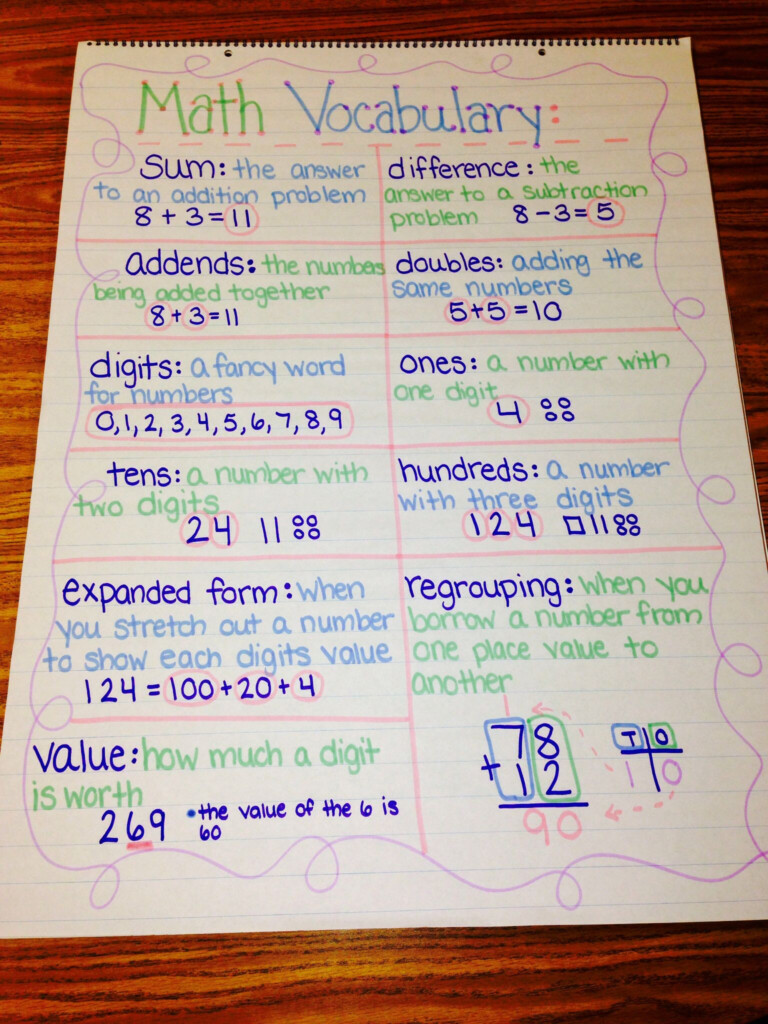 Math Vocabulary:
sum: the answer
to an addition problem
8 + 3 = 11
difference: the
answer to a subtraction
problem 8 - 3 = 5
addends: the numbers
being added together
8 + 3 = 11
doubles: adding the
same numbers
5 + 5 = 10
digits: a fancy word
for numbers
0, 1, 2, 3, 4, 5, 6, 7, 8, 9
ones: a number with
one digit
4
tens: a number with
two digits
24
hundreds: a number
with three digits
124
expanded form: when
you stretch out a number
to show each digits value
124 = 100 + 20 + 4
regrouping: when you
borrow a number from
one place value to
another
1
78
+ 12
90
T O
1 0
value: how much a digit
is worth
269 • the value of the 6 is
60